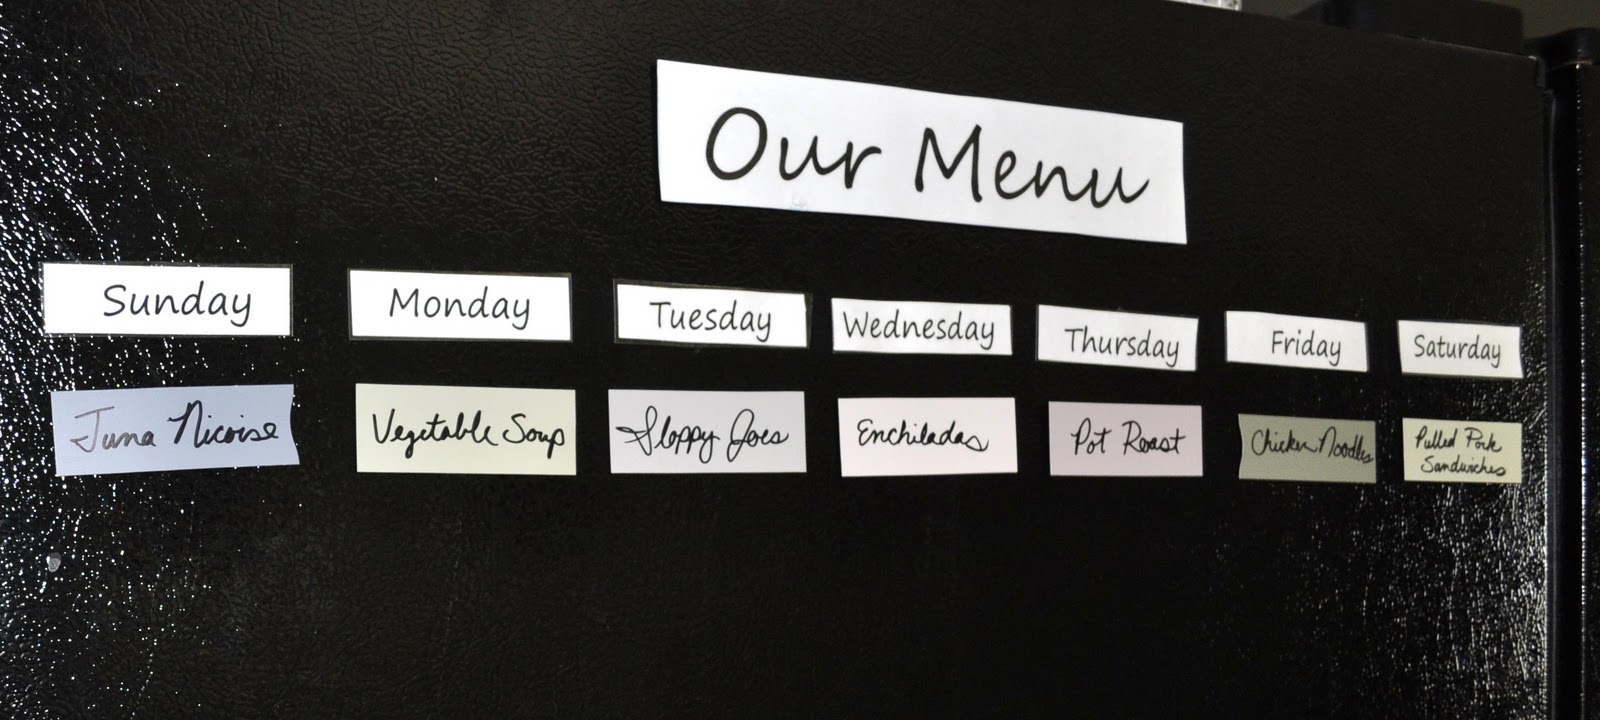 Our Menu
Sunday Monday Tuesday Wednesday Thursday Friday Saturday
Tuna Nicoise Vegetable Soup Sloppy Joes Enchiladas Pot Roast Chicken Noodles Pulled Pork
Sandwiches